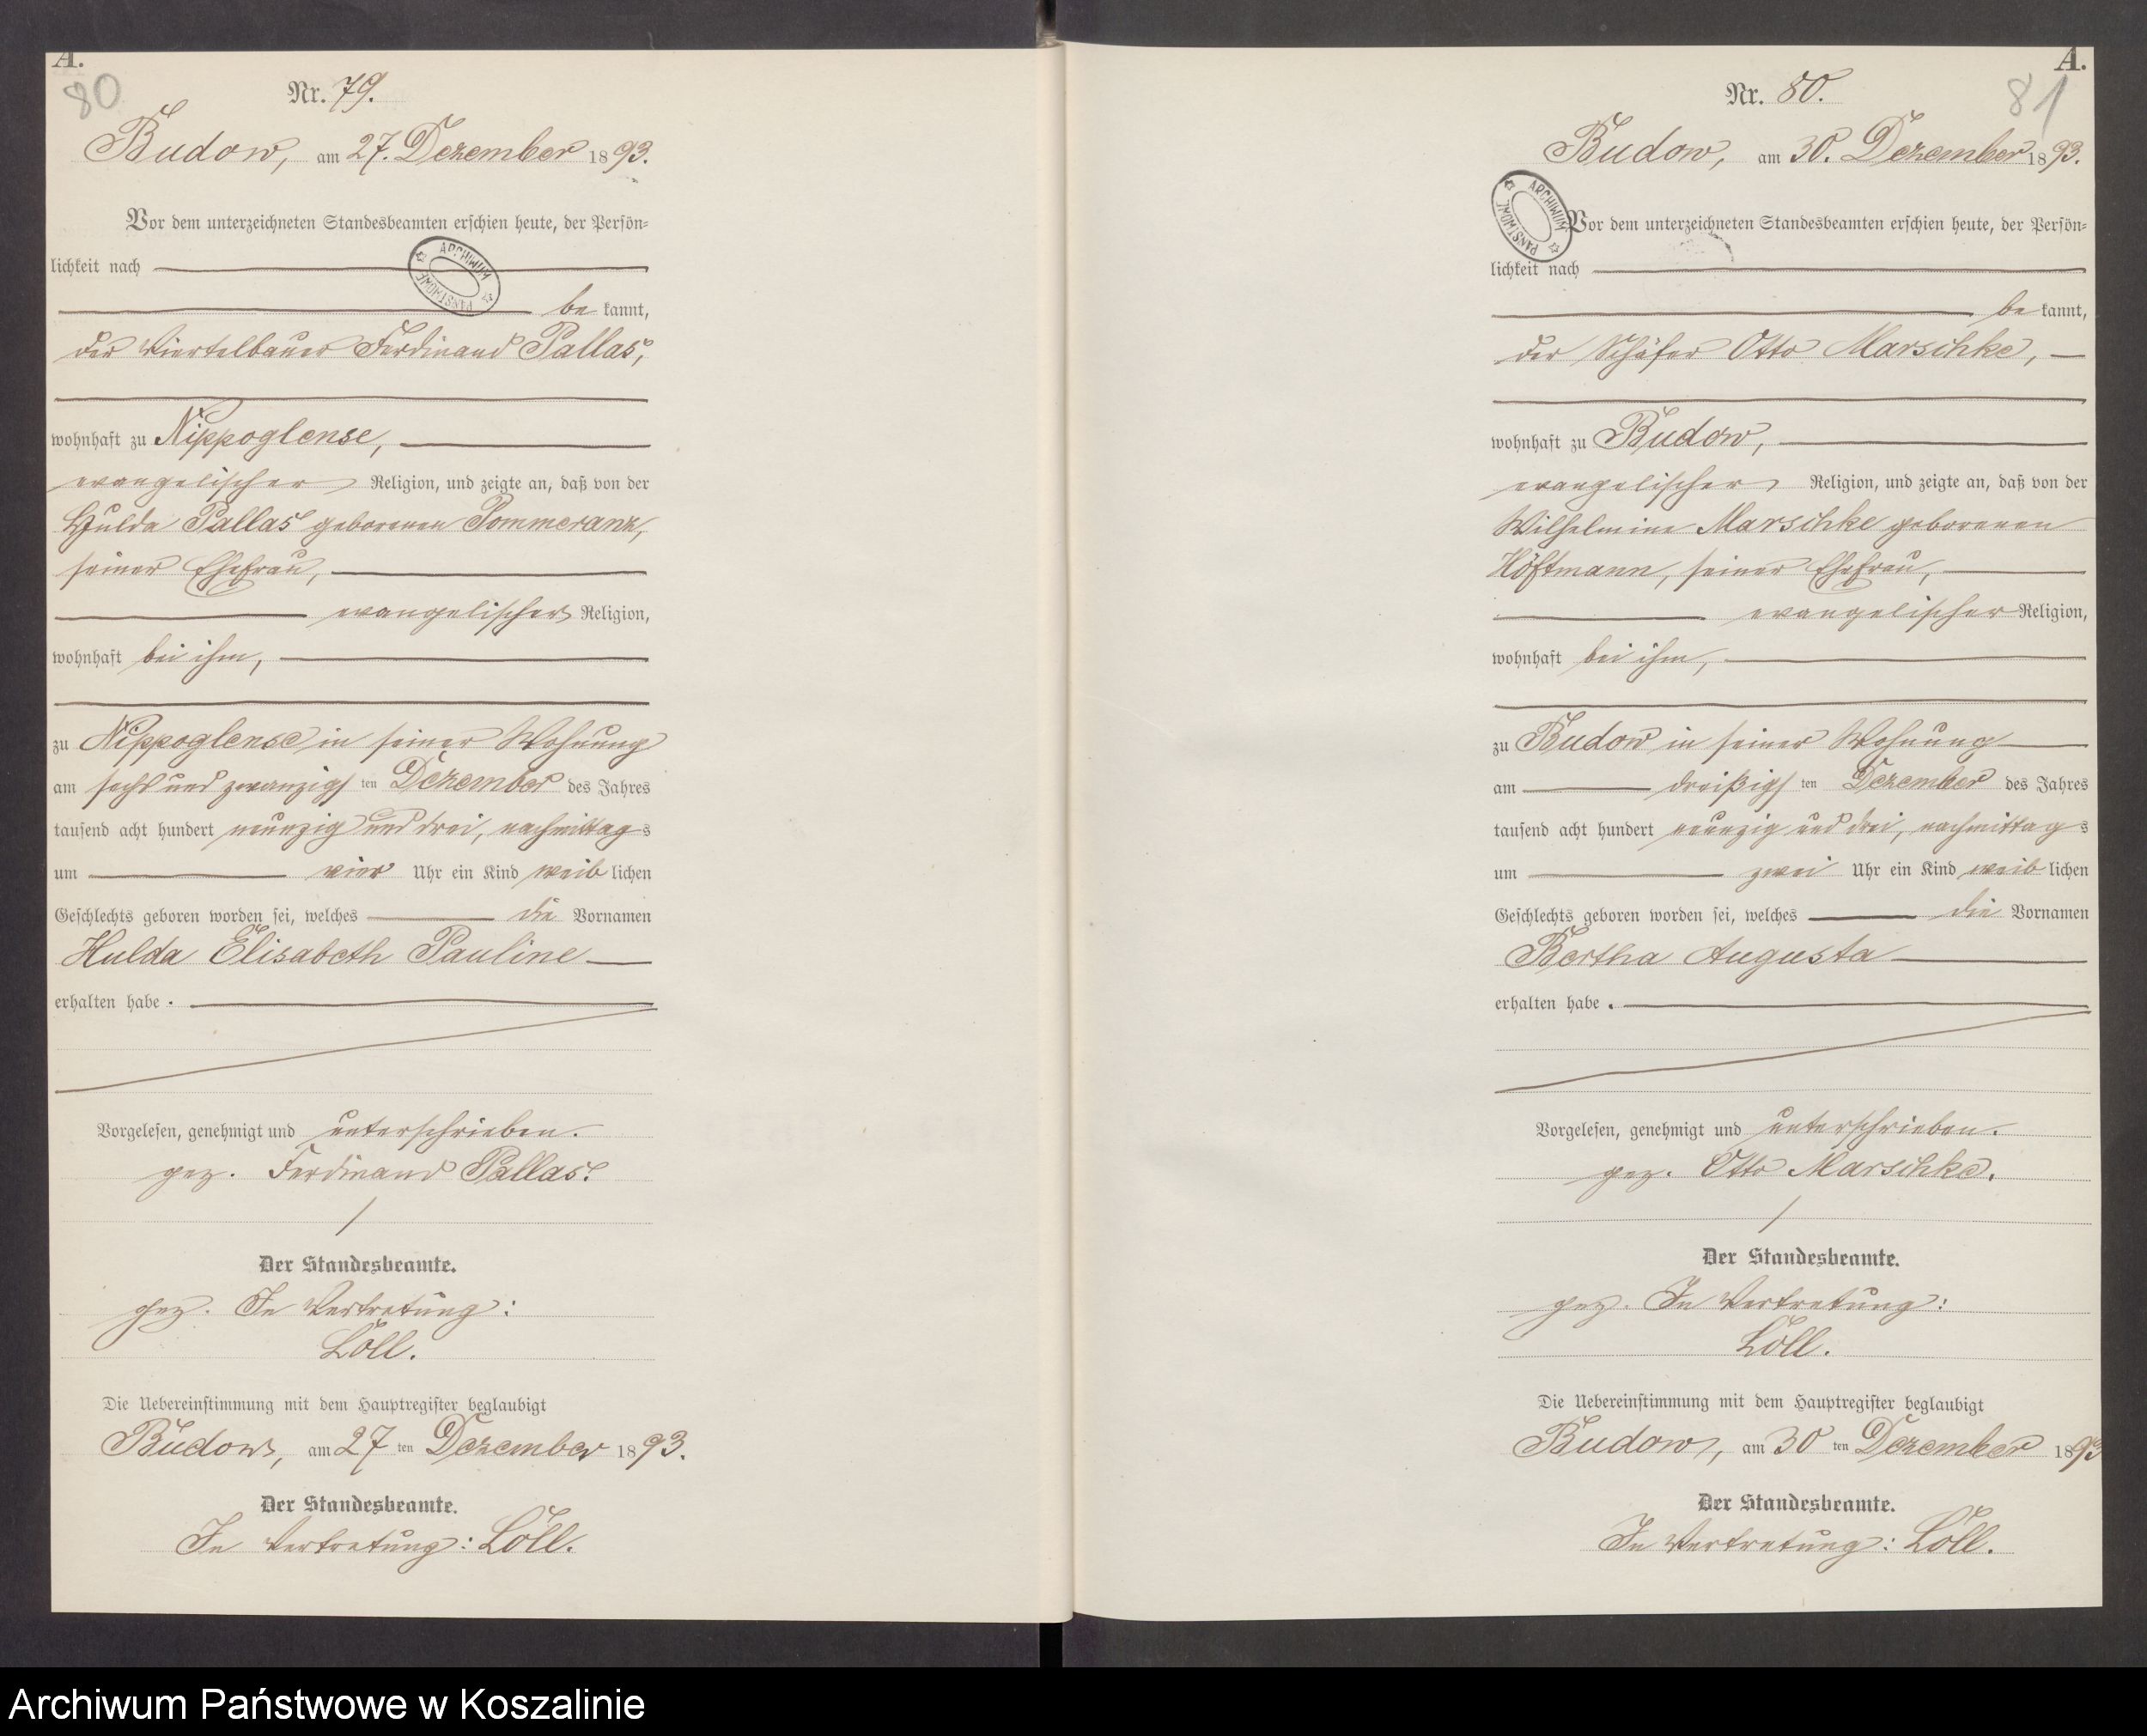 A.
80
Nr. 79.
Budow, am 27. Dezember 1893.
Vor dem unterzeichneten Standesbeamten erschien heute, der Persön-
lichkeit nach
ARCHIWUM PAŃSTWOWE
be kannt,
der Viertelbauer Ferdinand Pallas,
wohnhaft zu Nippoglense,
evangelischer Religion, und zeigte an, daß von der
Hulda Pallas geborenen Pommeranz,
seiner Ehefrau,
evangelischer Religion,
wohnhaft bei ihm,
zu Nippoglense in seiner Wohnung
am sechs und zwanzigsten Dezember des Jahres
tausend acht hundert neunzig und drei, nachmittags
um vier Uhr ein Kind weiblichen
Geschlechts geboren worden sei, welches die Vornamen
Hulda Elisabeth Pauline
erhalten habe.
Vorgelesen, genehmigt und unterschrieben.
gez. Ferdinand Pallas.
Der Standesbeamte.
gez. In Vertretung:
Löll.
Die Uebereinstimmung mit dem Hauptregister beglaubigt
Budow, am 27ten Dezember 1893.
Der Standesbeamte.
In Vertretung: Löll.
A.
81
Nr. 80.
Budow, am 30. Dezember 1893.
ARCHIWUM PAŃSTWOWE
Vor dem unterzeichneten Standesbeamten erschien heute, der Persön-
lichkeit nach
be kannt,
der Schäfer Otto Marschke,
wohnhaft zu Budow,
evangelischer Religion, und zeigte an, daß von der
Wilhelmine Marschke geborenen
Höftmann, seiner Ehefrau,
evangelischer Religion,
wohnhaft bei ihm,
zu Budow in seiner Wohnung
am dreißigsten Dezember des Jahres
tausend acht hundert neunzig und drei, nachmittags
um zwei Uhr ein Kind weiblichen
Geschlechts geboren worden sei, welches die Vornamen
Bertha Augusta
erhalten habe.
Vorgelesen, genehmigt und unterschrieben.
gez. Otto Marschke.
Der Standesbeamte.
gez. In Vertretung:
Löll.
Die Uebereinstimmung mit dem Hauptregister beglaubigt
Budow, am 30ten Dezember 1893
Der Standesbeamte.
In Vertretung: Löll.
Archiwum Państwowe w Koszalinie